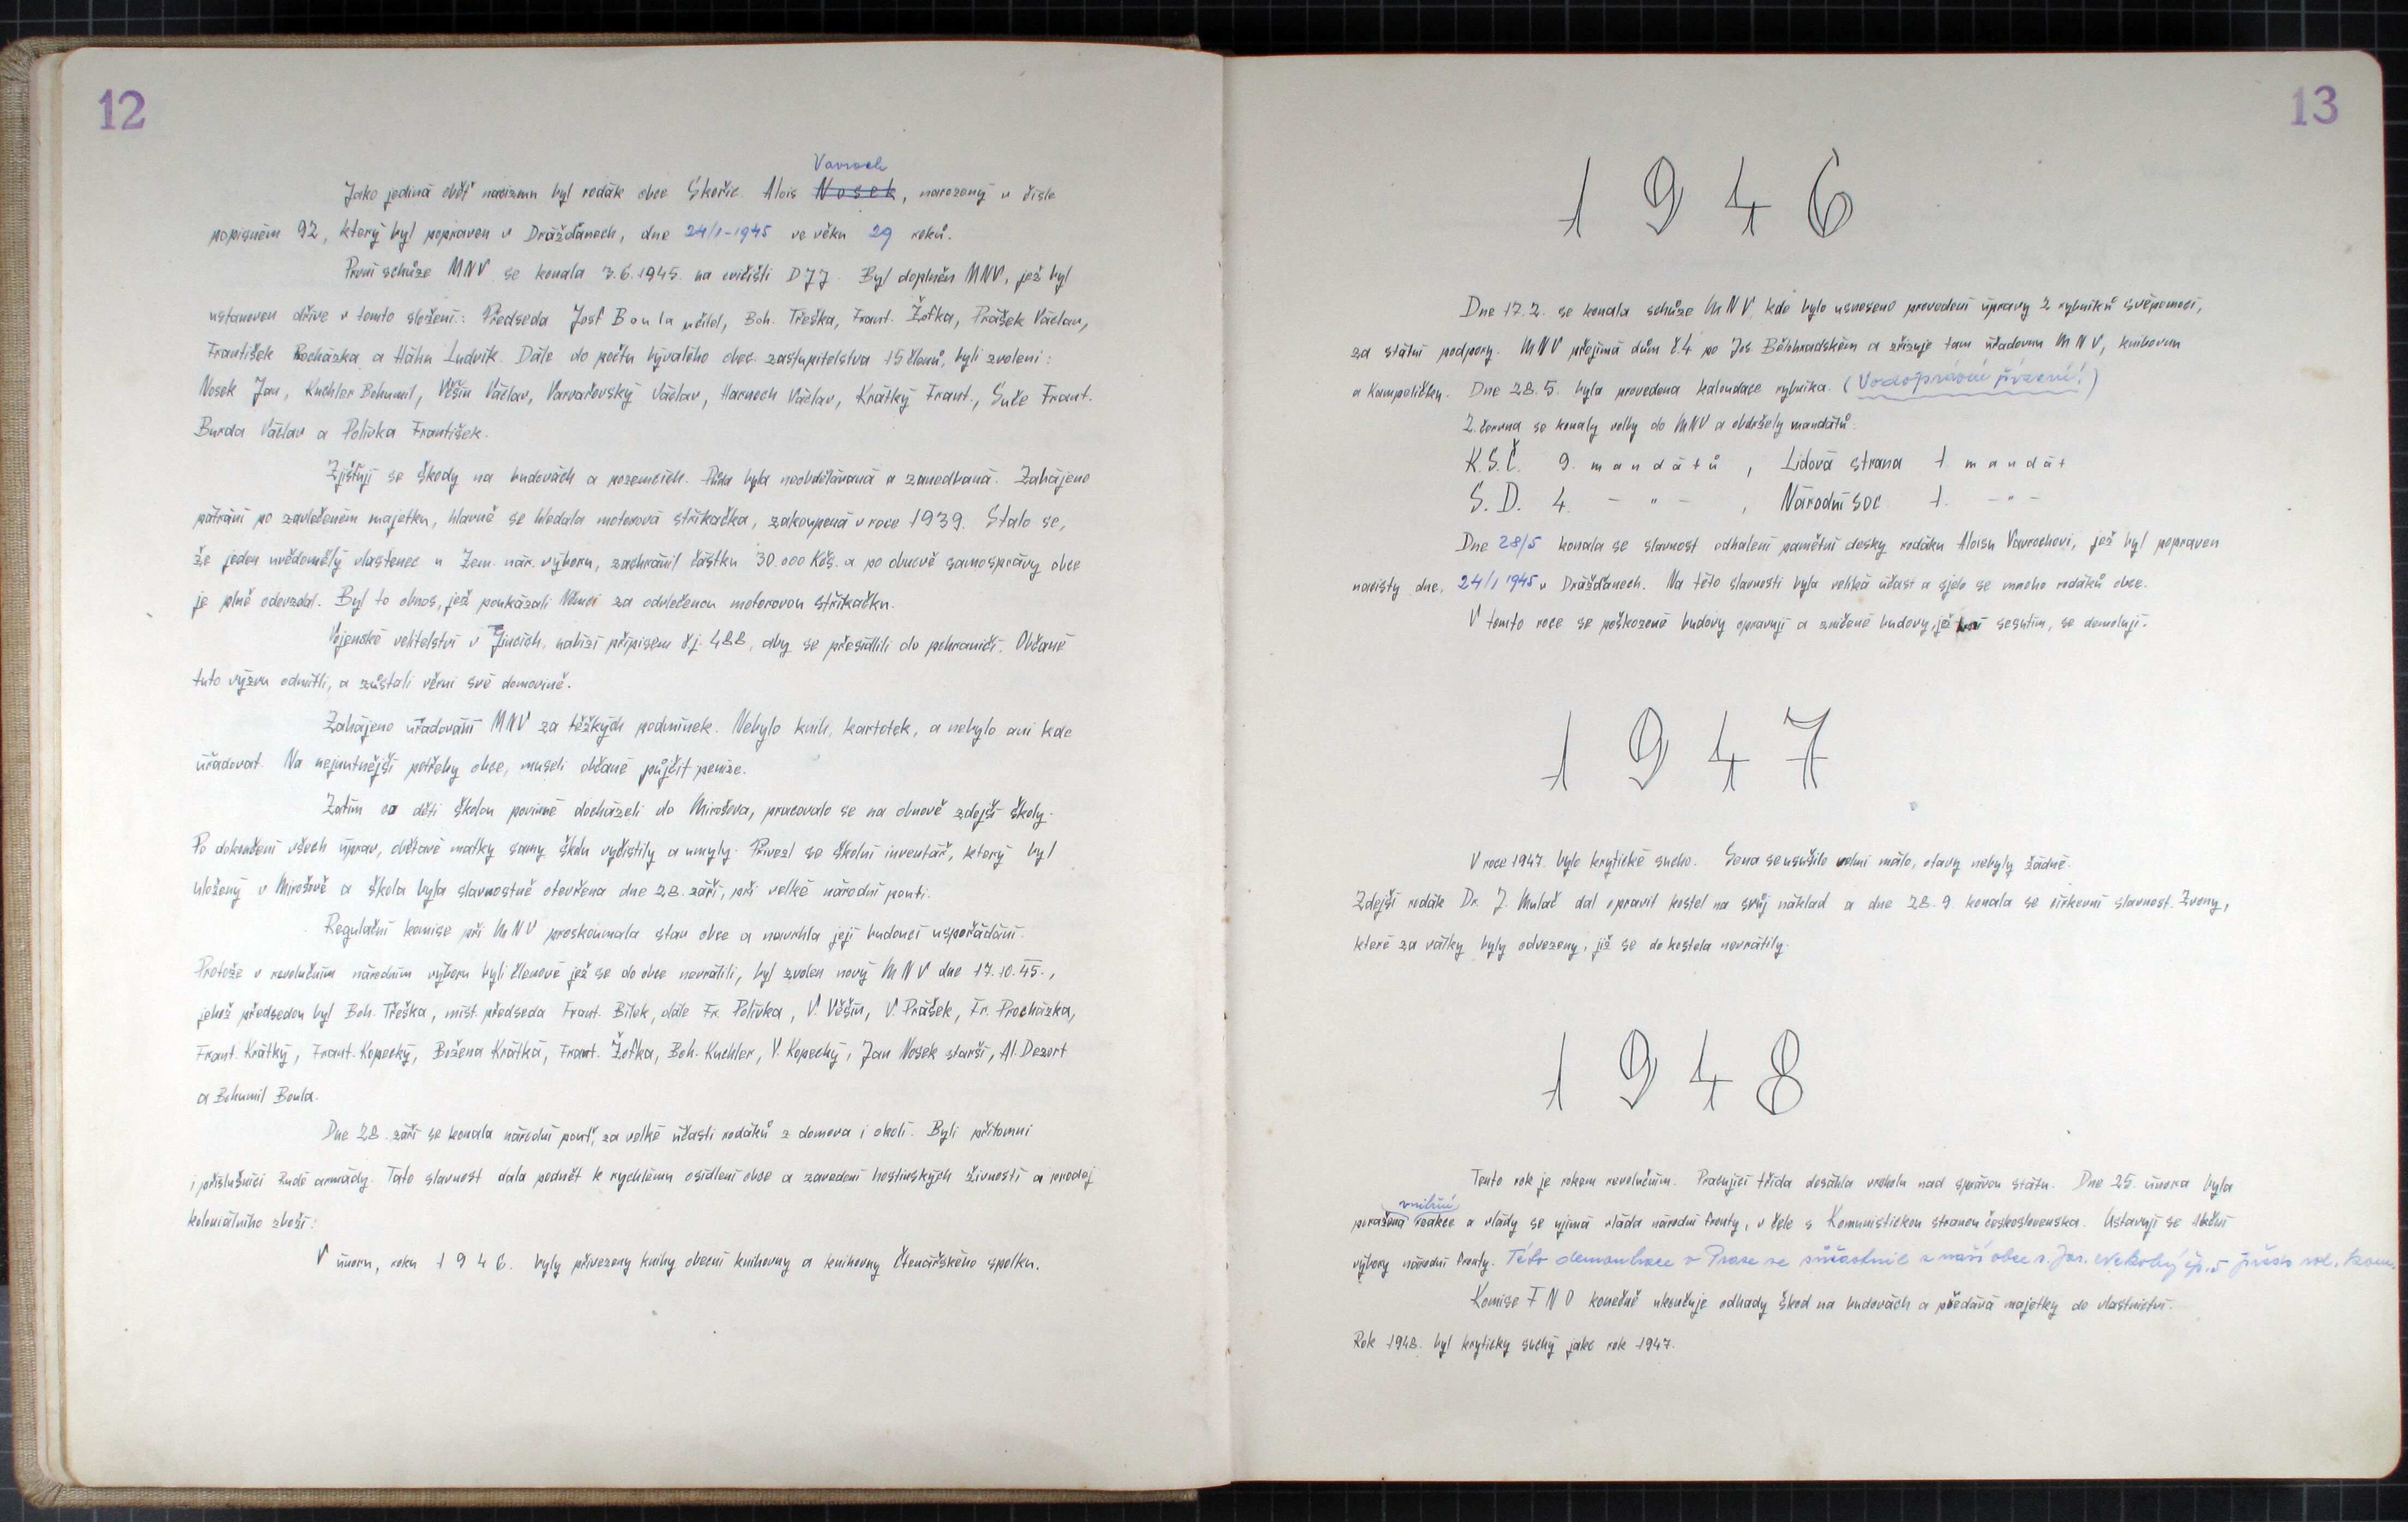 12
Vavroch
Jako jediná oběť nacizmu byl rodák obce Skořic. Alois Nosek, narozený v čísle
popisném 92, který byl popraven v Drážďanech, dne 24/1-1945 ve věku 29 roků.
První schůze MNV se konala 3.6.1945. na cvičišti DJJ. Byl doplněn MNV, jež byl
ustanoven dříve v tomto složení: Předseda Josf Boula učitel, Boh. Třeška, Frant. Žofka, Prášek Václav,
František Procházka a Hähn Ludvík. Dále do počtu bývalého obec. zastupitelstva 15 členů, byli zvoleni:
Nosek Jan, Kuchler Bohumil, Věšín Václav, Varvařovský Václav, Harnoch Václav, Krátký Frant., Suče Frant.
Burda Václav a Polívka František.
Zjišťují se škody na budovách a pozemcích. Půda byla neobdělávaná a zanedbaná. Zahájeno
pátrání po zavlečeném majetku, hlavně se hledala motorová stříkačka, zakoupená v roce 1939. Stalo se,
že jeden uvědomělý vlastenec u Zem. nár. výboru, zachránil částku 30.000 Kčs. a po obnově samosprávy obce
je plně odevzdal. Byl to obnos, jež poukázali Němci za odvlečenou motorovou stříkačku.
Vojenské velitelství v Jincích, nabízí přípisem č.j. 488, aby se přesídlili do pohraničí. Občané
tuto výzvu odmítli, a zůstali věrni své domovině.
Zahájeno úřadování MNV za těžkých podmínek. Nebylo knih, kartotek, a nebylo ani kde
úřadovat. Na nejnutnější potřeby obce, museli občané půjčit peníze.
Zatím co děti školou povinné docházeli do Mirošova, pracovalo se na obnově zdejší školy.
Po dokončení všech úprav, obětavé matky samy školu vyčistily a umyly. Přivezl se školní inventář, který byl
uložený v Mirošově a škola byla slavnostně otevřena dne 28. září, při velké národní pouti.
Regulační komise při MNV proskoumala stav obce a navrhla její budoucí uspořádání.
Protože v revolučním národním výboru byli členové jež se do obce nevrátili, byl zvolen nový MNV dne 17.10.45.,
jehož předsedou byl Boh. Třeška, míst. předseda Frant. Bílek, dále Fr. Polívka, V. Věšín, V. Prášek, Fr. Procházka,
Frant. Krátký, Frant. Kopecký, Božena Krátká, Frant. Žofka, Boh. Kuchler, V. Kopecký, Jan Nosek starší, Al. Dezort
a Bohumil Boula.
Dne 28. září se konala národní pouť, za velké účasti rodáků z domova i okolí. Byli přítomni
i příslušníci Rudé armády. Tato slavnost dala podnět k rychlému osídlení obce a zavedení hostinských živností a prodej
koloniálního zboží.
V únoru, roku 1946. byly přivezeny knihy obecní knihovny a knihovny Čtenářského spolku.
13
1946
Dne 17.2. se konala schůze MNV, kde bylo usneseno provedení úpravy 2 rybníků svépomocí,
za státní podpory. MNV přejímá dům č.4 po Jos. Bělohradském a zřizuje tam úřadovnu MNV, knihovnu
a Kampeličku. Dne 28.5. byla provedena kaloudace rybníka. (Vodoprávní řízení!)
2. června se konaly volby do MNV a obdržely mandátů:
K.S.Č. 9. mandátů, Lidová strana 1. mandát
S.D. 4. - " -, Národní soc 1. - " -
Dne 28/5 konala se slavnost odhalení pamětní desky rodáku Aloisu Vavrochovi, jež byl popraven
nacisty dne, 24/1 1945 v Drážďanech. Na této slavnosti byla veliká účast a sjelo se mnoho rodáků obce.
V tomto roce se poškozené budovy opravují a zničené budovy, jež sesutím, se demolují.
1947
V roce 1947. bylo krytické sucho. Sena se usušilo velmi málo, otavy nebyly žádné.
Zdejší rodák Dr. J. Mulač dal opravit kostel na svůj náklad a dne 28.9. konala se církevní slavnost. Zvony,
které za války byly odvezeny, již se do kostela nevrátily.
1948
Tento rok je rokem revolučním. Pracující třída dosáhla vrcholu nad správou státu. Dne 25. února byla
vnitřní
poražena reakce a vlády se ujímá vláda národní fronty, v čele s Komunistickou stranou československa. Ustavují se Akční
výbory národní fronty. Této demonstrace v Praze se súčastnil z naší obce s. Jos. čp. 5
Komise FNO konečně ukončuje odhady škod na budovách a předává majetky do vlastnictví.
Rok 1948. byl kryticky suchý jako rok 1947.